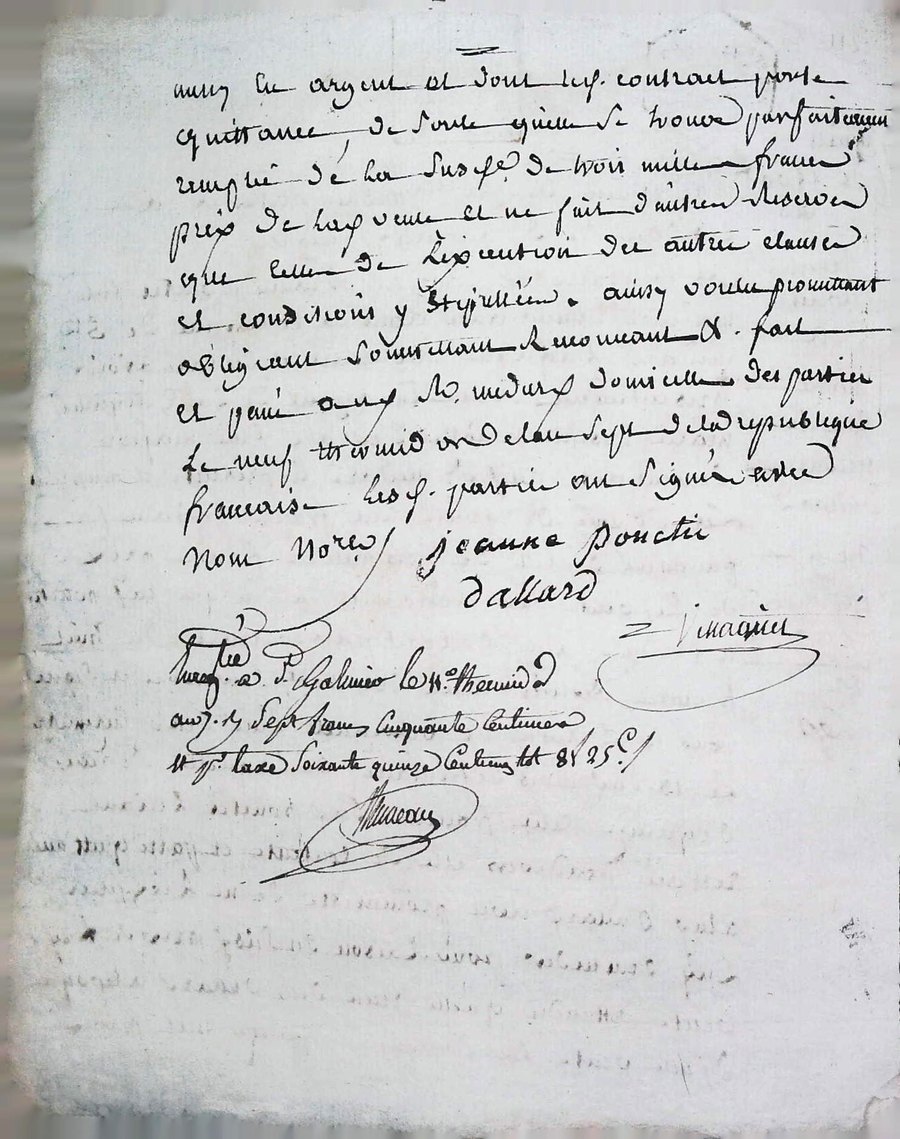 aussy en argent et dont led. contract porte
quittance, de sorte qu'elle se trouve parfaitement
remplie de la susd.e de trois mille francs
prix de lad. vente et ne fait d'autres Reserves
que celle de l'exécution des autres clauses
et conditions y stipullées. ainsy voulu promettant
obligeant soumettant Renonceant &. fait
et passé aud. St. medard domicille des parties
Le neuf thermidor de lan sept de la republique
francaise lesd. parties ont signé avec
Nous Nore
jeanne ponctie
dallard
Enreg.tré a St. Galmier le 11.e Thermid.
an 7. sept francs Cinquante Centimes
et p.r taxe soixante quinze Centimes tot 8f 25c